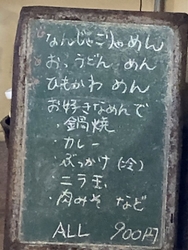 なんじゃこりゃめん
おっうどん めん
ひもかわ めん
お好きなめんで
・鍋焼
・カレー
・ぶっかけ(冷)
・ニラ玉
・肉みそ など
ALL 900円